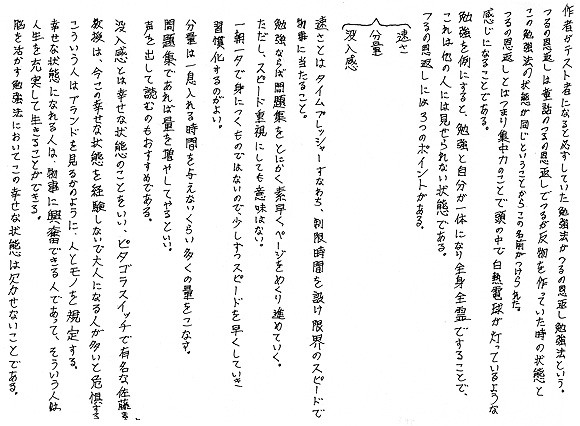 作者がテスト者になると必ずしていた勉強法がつるの恩返し勉強法という。
つるの恩返しは童話のつるの恩返しでつるが反物を作っていた時の状態と
この勉強法の状態が同じということからこの名前がつけられた。
つるの恩返しとはつまり集中力のことで頭の中で白熱電球が灯っているような
感じになることである。
勉強を例にすると、勉強と自分が一体になり全身全霊ですることで、
これは他の人には見せられない状態である。
つるの恩返しには3つのポイントがある。
速さ
分量
没入感
速さとはタイムプレッシャーすなわち、制限時間を設け限界のスピードで
物事に当たること。
勉強ならば問題集をとにかく素早くページをめくり進めていく。
ただし、スピード重視にしても意味はない。
一朝一夕で身につくものではないので、少しずつスピードを早くしていき
習慣化するのがよい。
分量は一息入れる時間を与えないくらい多くの量をこなす。
問題集であれば量を増やしてやるとよい。
声を出して読むのもおすすめである。
没入感とは幸せな状態のことをいい、ピタゴラスイッチで有名な佐藤雅
教授は、今この幸せな状態を経験しないで大人になる人が多いと危惧す
こういう人はブランドを見るかのように、人とモノを規定する。
幸せな状態になれる人は、物事に興奮できる人であって、そういう人は
人生を充実して生きることができる。
脳を活かす勉強法においてこの幸せな状態は欠かせないことである。